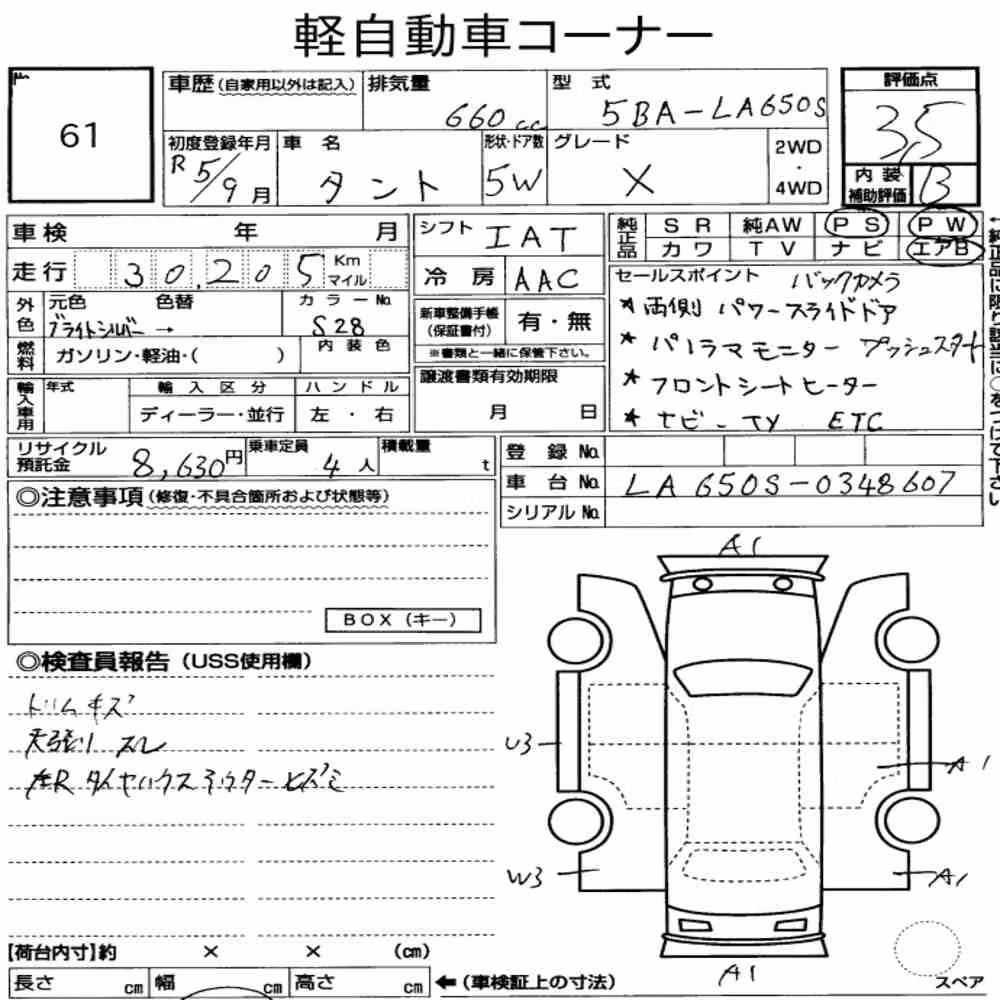 軽自動車コーナー
61
車歴(自家用以外は記入) 排気量 660cc 型式 5BA-LA650S
評価点 3,5
初度登録年月 R5/9月 車名 タント 形状・ドア数 5W グレード X 2WD・4WD
内装補助評価 B
車検 年 月
走行 30,205 Km マイル
外色 元色 ブライトシルバー → 色替 カラーNo. S28
燃料 ガソリン・軽油・( ) 内装色
輸入車用 年式 輸入区分 ディーラー・並行 ハンドル 左・右
リサイクル預託金 8,630円 乗車定員 4人 積載量 t
シフト IAT
冷房 AAC
新車整備手帳(保証書付) 有・無
※書類と一緒に保管下さい。
譲渡書類有効期限
月 日
純正品 SR 純AW PS PW
カワ TV ナビ エアB
セールスポイント バックカメラ
*両側パワースライドドア
*パノラマモニター プッシュスタート
*フロントシートヒーター
*ナビ-TV ETC
←純正品に限り該当に○をつけて下さい
登録No.
車台No. LA650S-0348607
シリアルNo.
◎注意事項(修復・不具合箇所および状態等)
BOX(キー)
◎検査員報告(USS使用欄)
トリムキズ
天張リスレ
左Rタイヤハウスアウターヒズミ
A1
U3
A1
W3
A1
A1
スペア
【荷台内寸】約 × × (cm)
長さ cm 幅 cm 高さ cm ←(車検証上の寸法)